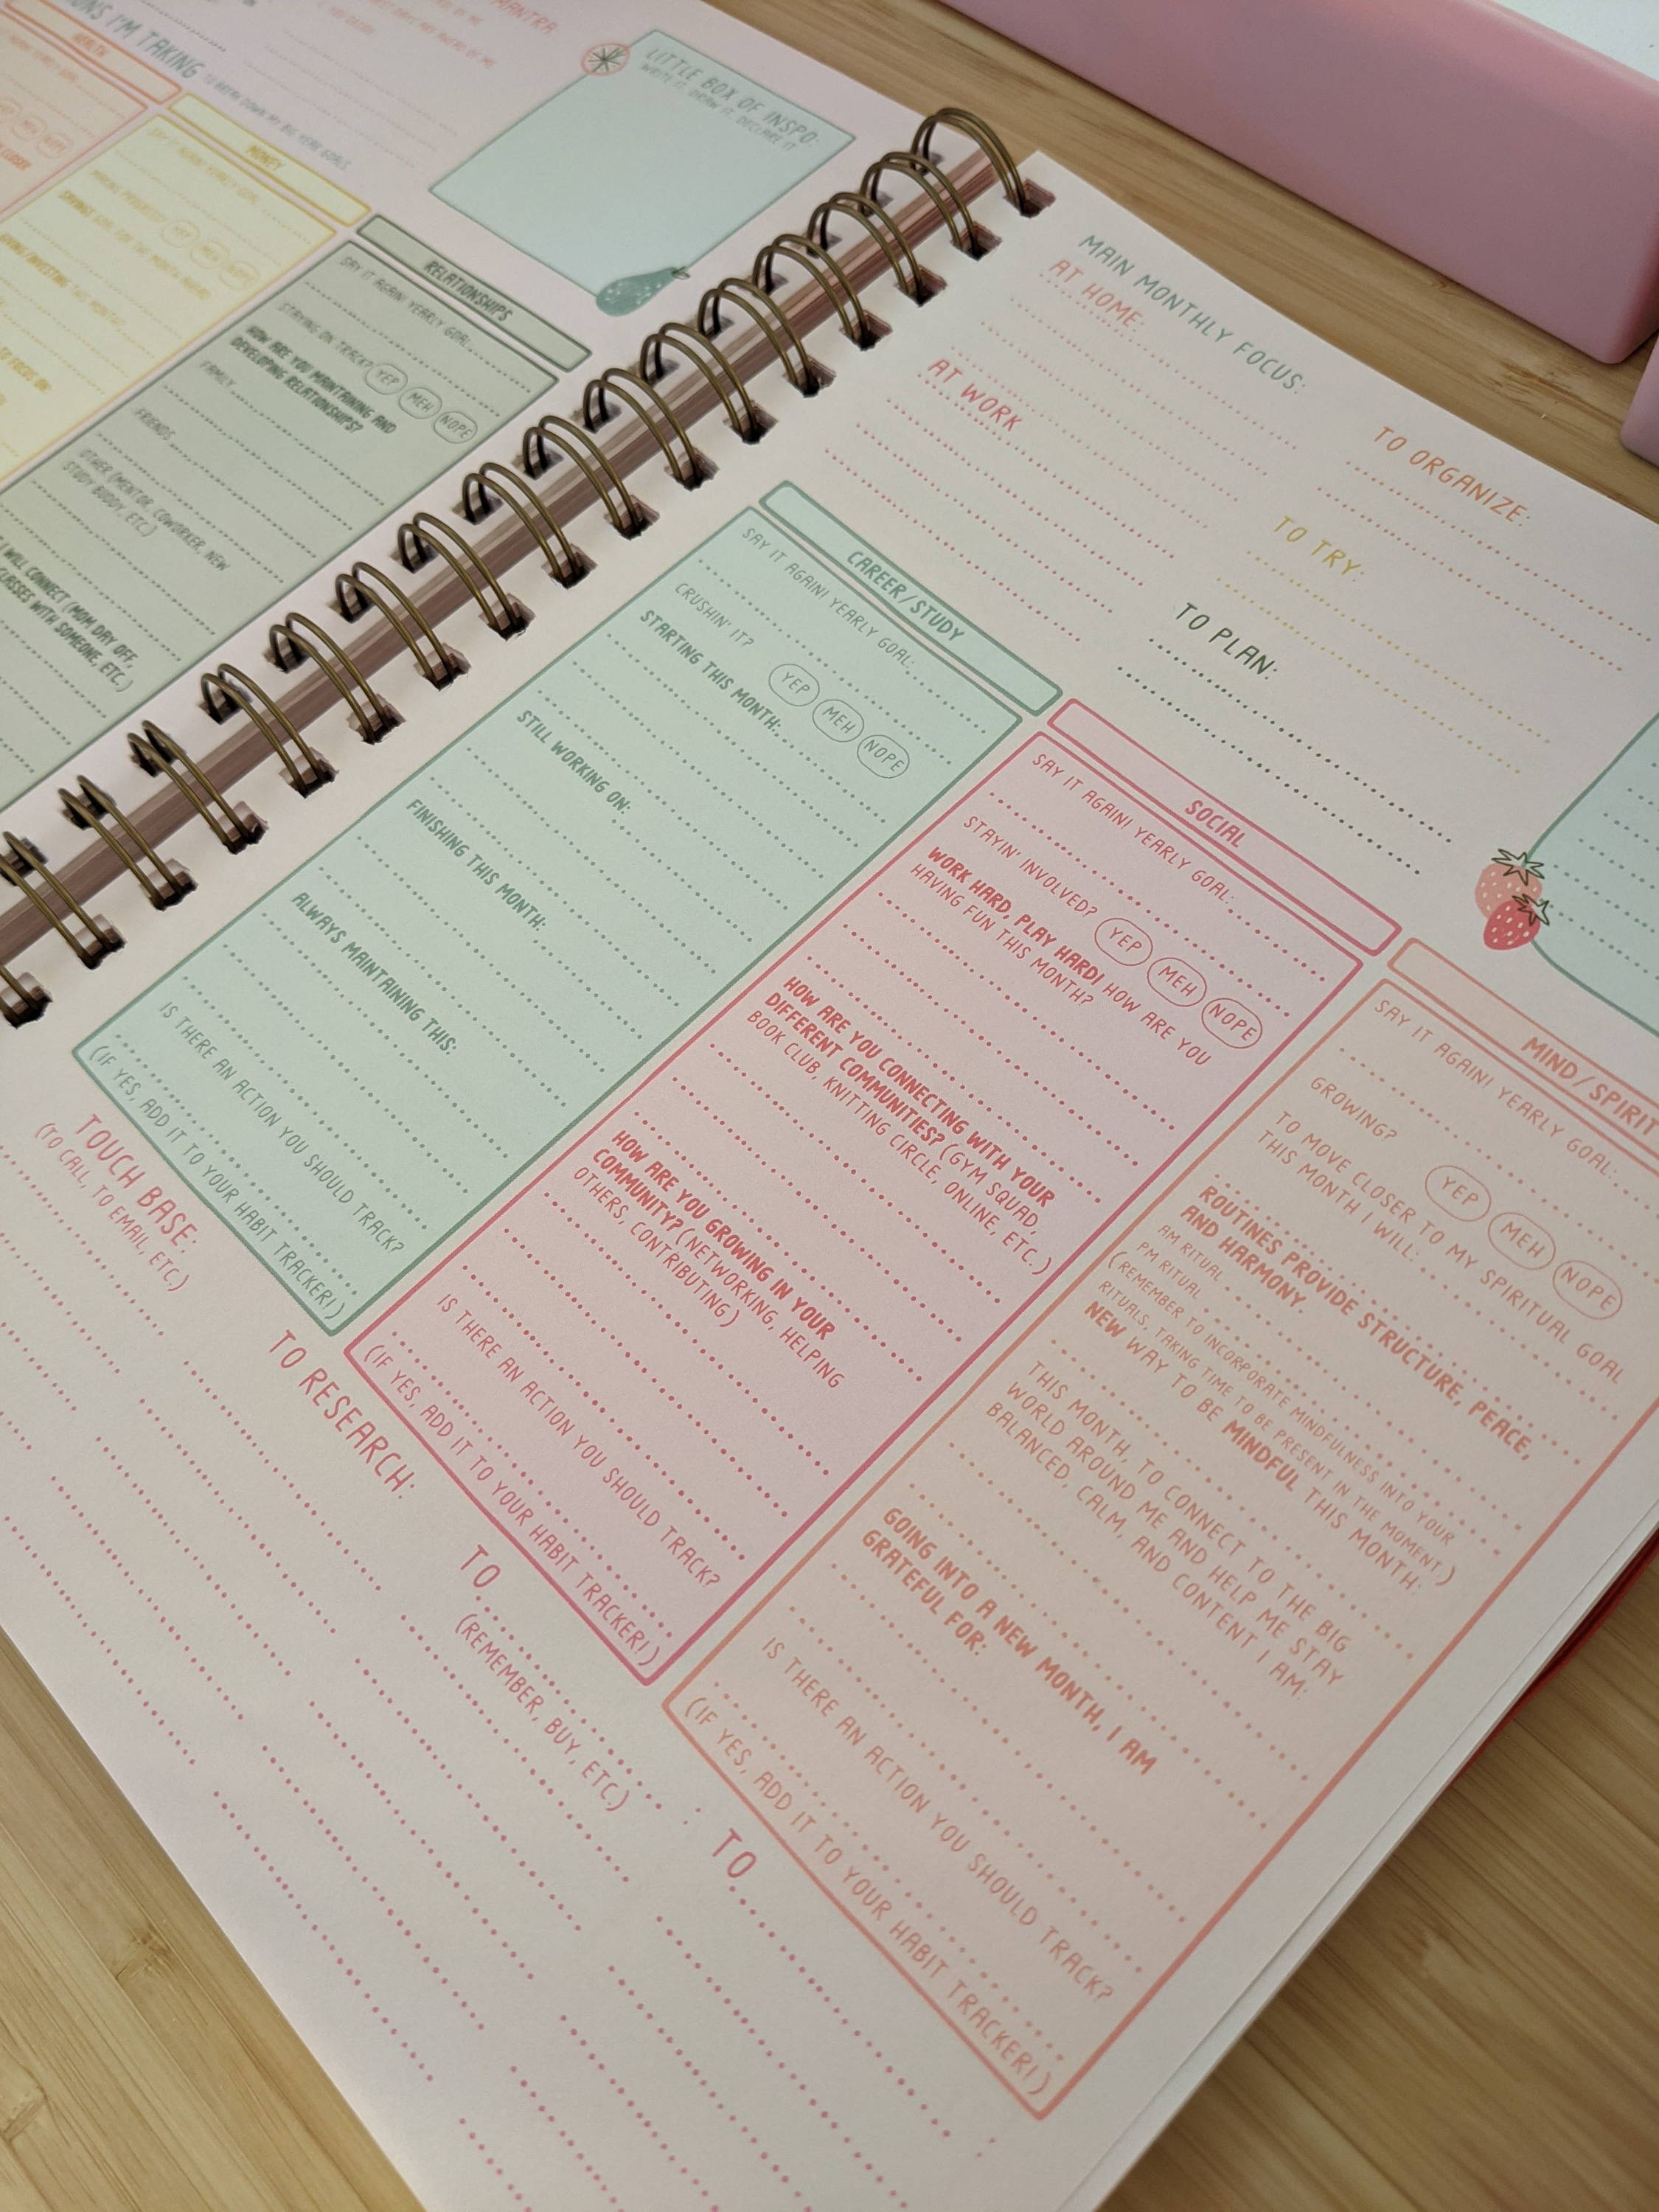 MANTRA
IONS I'M TAKING TO BREAK DOWN MY BIG YEAR GOALS
LITTLE BOX OF INSPO:
WRITE IT, DRAW IT, DECLARE IT
HEALTH
MEH
NOPE
CLOSER
MONEY
SAY IT AGAIN! YEARLY GOAL:
MAKING PROGRESS? YEP MEH NOPE
THIS MONTH:
TO FOCUS ON:
RELATIONSHIPS
SAY IT AGAIN! YEARLY GOAL:
STAYING ON TRACK? YEP MEH NOPE
HOW ARE YOU MAINTAINING AND
DEVELOPING RELATIONSHIPS?
FAMILY
FRIENDS
OTHER (MENTOR, COWORKER, NEW
STUDY BUDDY, ETC.)
I WILL CONNECT (MOM DAY OFF,
CLASSES WITH SOMEONE, ETC.)
MAIN MONTHLY FOCUS:
AT HOME:
AT WORK
TO ORGANIZE:
TO TRY:
TO PLAN:
CAREER/STUDY
SAY IT AGAIN! YEARLY GOAL:
CRUSHIN' IT? YEP MEH NOPE
STARTING THIS MONTH:
STILL WORKING ON:
FINISHING THIS MONTH:
ALWAYS MAINTAINING THIS:
IS THERE AN ACTION YOU SHOULD TRACK?
(IF YES, ADD IT TO YOUR HABIT TRACKER!)
SOCIAL
SAY IT AGAIN! YEARLY GOAL:
STAYIN' INVOLVED? YEP MEH NOPE
WORK HARD, PLAY HARD! HOW ARE YOU
HAVING FUN THIS MONTH?
HOW ARE YOU CONNECTING WITH YOUR
DIFFERENT COMMUNITIES? (GYM SQUAD,
BOOK CLUB, KNITTING CIRCLE, ONLINE, ETC.)
HOW ARE YOU GROWING IN YOUR
COMMUNITY? (NETWORKING, HELPING
OTHERS, CONTRIBUTING)
IS THERE AN ACTION YOU SHOULD TRACK?
(IF YES, ADD IT TO YOUR HABIT TRACKER!)
MIND/SPIRIT
SAY IT AGAIN! YEARLY GOAL:
GROWING? YEP MEH NOPE
TO MOVE CLOSER TO MY SPIRITUAL GOAL
THIS MONTH I WILL:
ROUTINES PROVIDE STRUCTURE, PEACE,
AND HARMONY.
AM RITUAL
PM RITUAL
(REMEMBER TO INCORPORATE MINDFULNESS INTO YOUR
RITUALS, TAKING TIME TO BE PRESENT IN THE MOMENT.)
NEW WAY TO BE MINDFUL THIS MONTH:
THIS MONTH, TO CONNECT TO THE BIG
WORLD AROUND ME AND HELP ME STAY
BALANCED, CALM, AND CONTENT I AM:
GOING INTO A NEW MONTH, I AM
GRATEFUL FOR:
IS THERE AN ACTION YOU SHOULD TRACK?
(IF YES, ADD IT TO YOUR HABIT TRACKER!)
TOUCH BASE:
(TO CALL, TO EMAIL, ETC.)
TO RESEARCH:
TO :
(REMEMBER, BUY, ETC.)
TO :